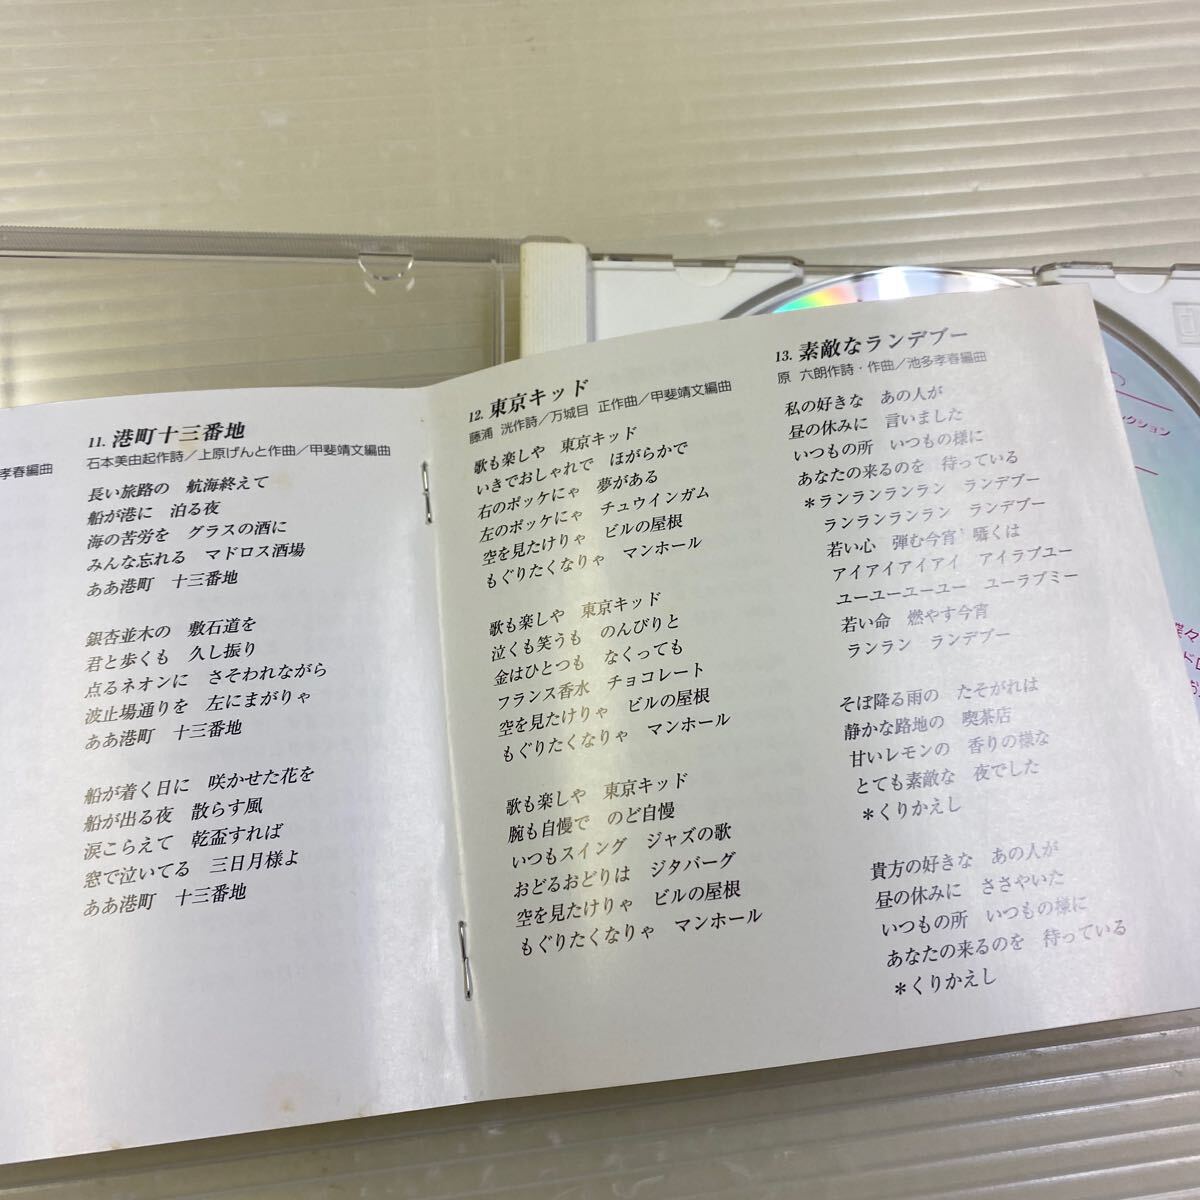 孝春編曲
11. 港町十三番地
石本美由起作詩／上原げんと作曲／甲斐靖文編曲
長い旅路の　航海終えて
船が港に　泊る夜
海の苦労を　グラスの酒に
みんな忘れる　マドロス酒場
ああ港町　十三番地
銀杏並木の　敷石道を
君と歩くも　久し振り
点るネオンに　さそわれながら
波止場通りを　左にまがりゃ
ああ港町　十三番地
船が着く日に　咲かせた花を
船が出る夜　散らす風
涙こらえて　乾盃すれば
窓で泣いてる　三日月様よ
ああ港町　十三番地
12. 東京キッド
藤浦　洸作詩／万城目　正作曲／甲斐靖文編曲
歌も楽しや　東京キッド
いきでおしゃれで　ほがらかで
右のポッケにゃ　夢がある
左のポッケにゃ　チュウインガム
空を見たけりゃ　ビルの屋根
もぐりたくなりゃ　マンホール
歌も楽しや　東京キッド
泣くも笑うも　のんびりと
金はひとつも　なくっても
フランス香水　チョコレート
空を見たけりゃ　ビルの屋根
もぐりたくなりゃ　マンホール
歌も楽しや　東京キッド
腕も自慢で　のど自慢
いつもスイング　ジャズの歌
おどるおどりは　ジタバーグ
空を見たけりゃ　ビルの屋根
もぐりたくなりゃ　マンホール
13. 素敵なランデブー
原　六朗作詩・作曲／池多孝春編曲
私の好きな　あの人が
昼の休みに　言いました
いつもの所　いつもの様に
あなたの来るのを　待っている
＊ランランランラン　ランデブー
ランランランラン　ランデブー
若い心　弾む今宵　囁くは
アイアイアイアイ　アイラブユー
ユーユーユーユー　ユーラブミー
若い命　燃やす今宵
ランラン　ランデブー
そぼ降る雨の　たそがれは
静かな路地の　喫茶店
甘いレモンの　香りの様な
とても素敵な　夜でした
＊くりかえし
貴方の好きな　あの人が
昼の休みに　ささやいた
いつもの所　いつもの様に
あなたの来るのを　待っている
＊くりかえし
クション